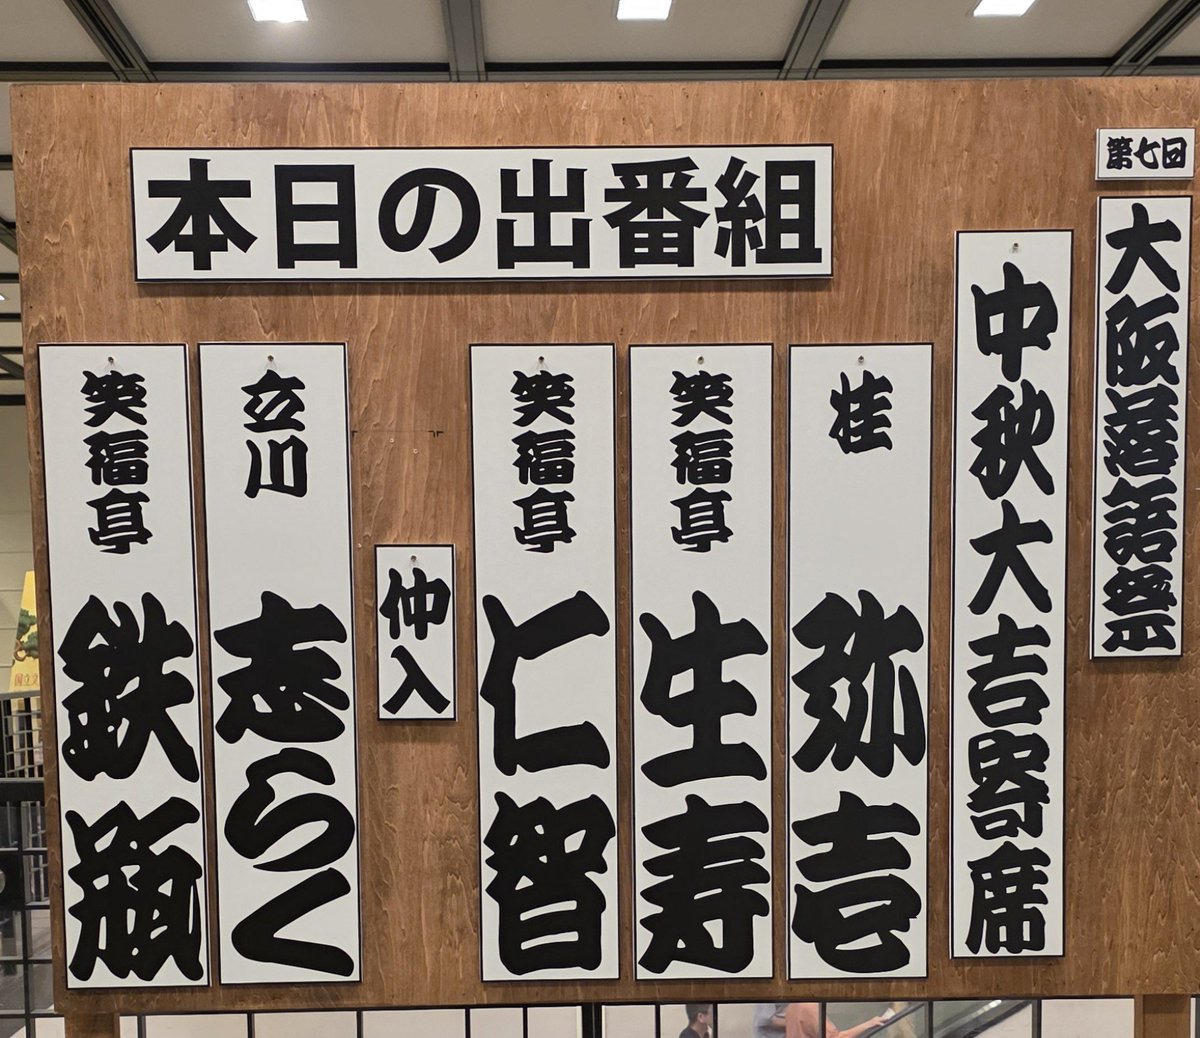 本日の出番組
第七回
大阪落語祭
中秋大吉寄席
桂 弥壱
笑福亭 生寿
笑福亭 仁智
仲入
立川 志らく
笑福亭 鉄瓶